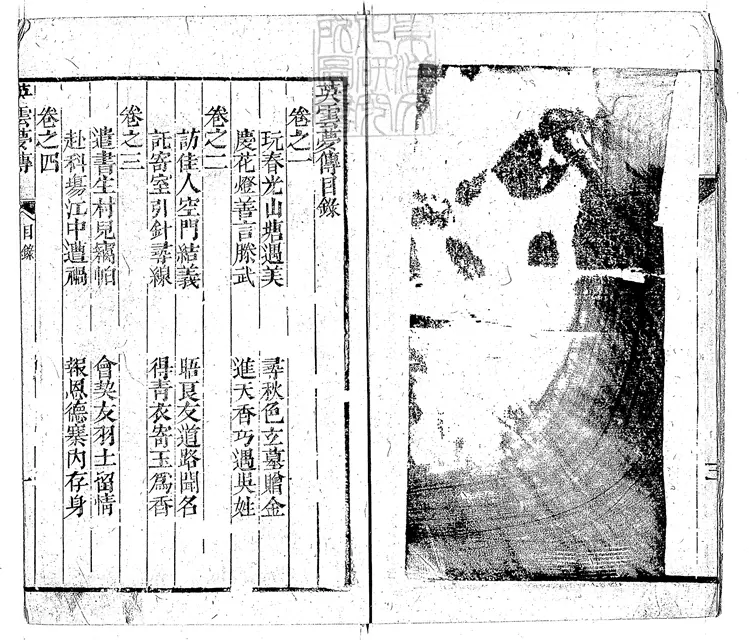 英雲夢傳目錄
卷之一
玩春光山塘遇美　尋秋色玄墓贈金
慶花燈善言滕武　進天香巧遇吳姓
卷之二
訪佳人空門結義　晤良友道路聞名
託寄室引針尋線　得青衣寄玉爲香
卷之三
遣書生村見竊帕　會契友羽士留情
赴科場江中遭禍　報恩德寨內存身
卷之四
英雲夢傳　目錄　一